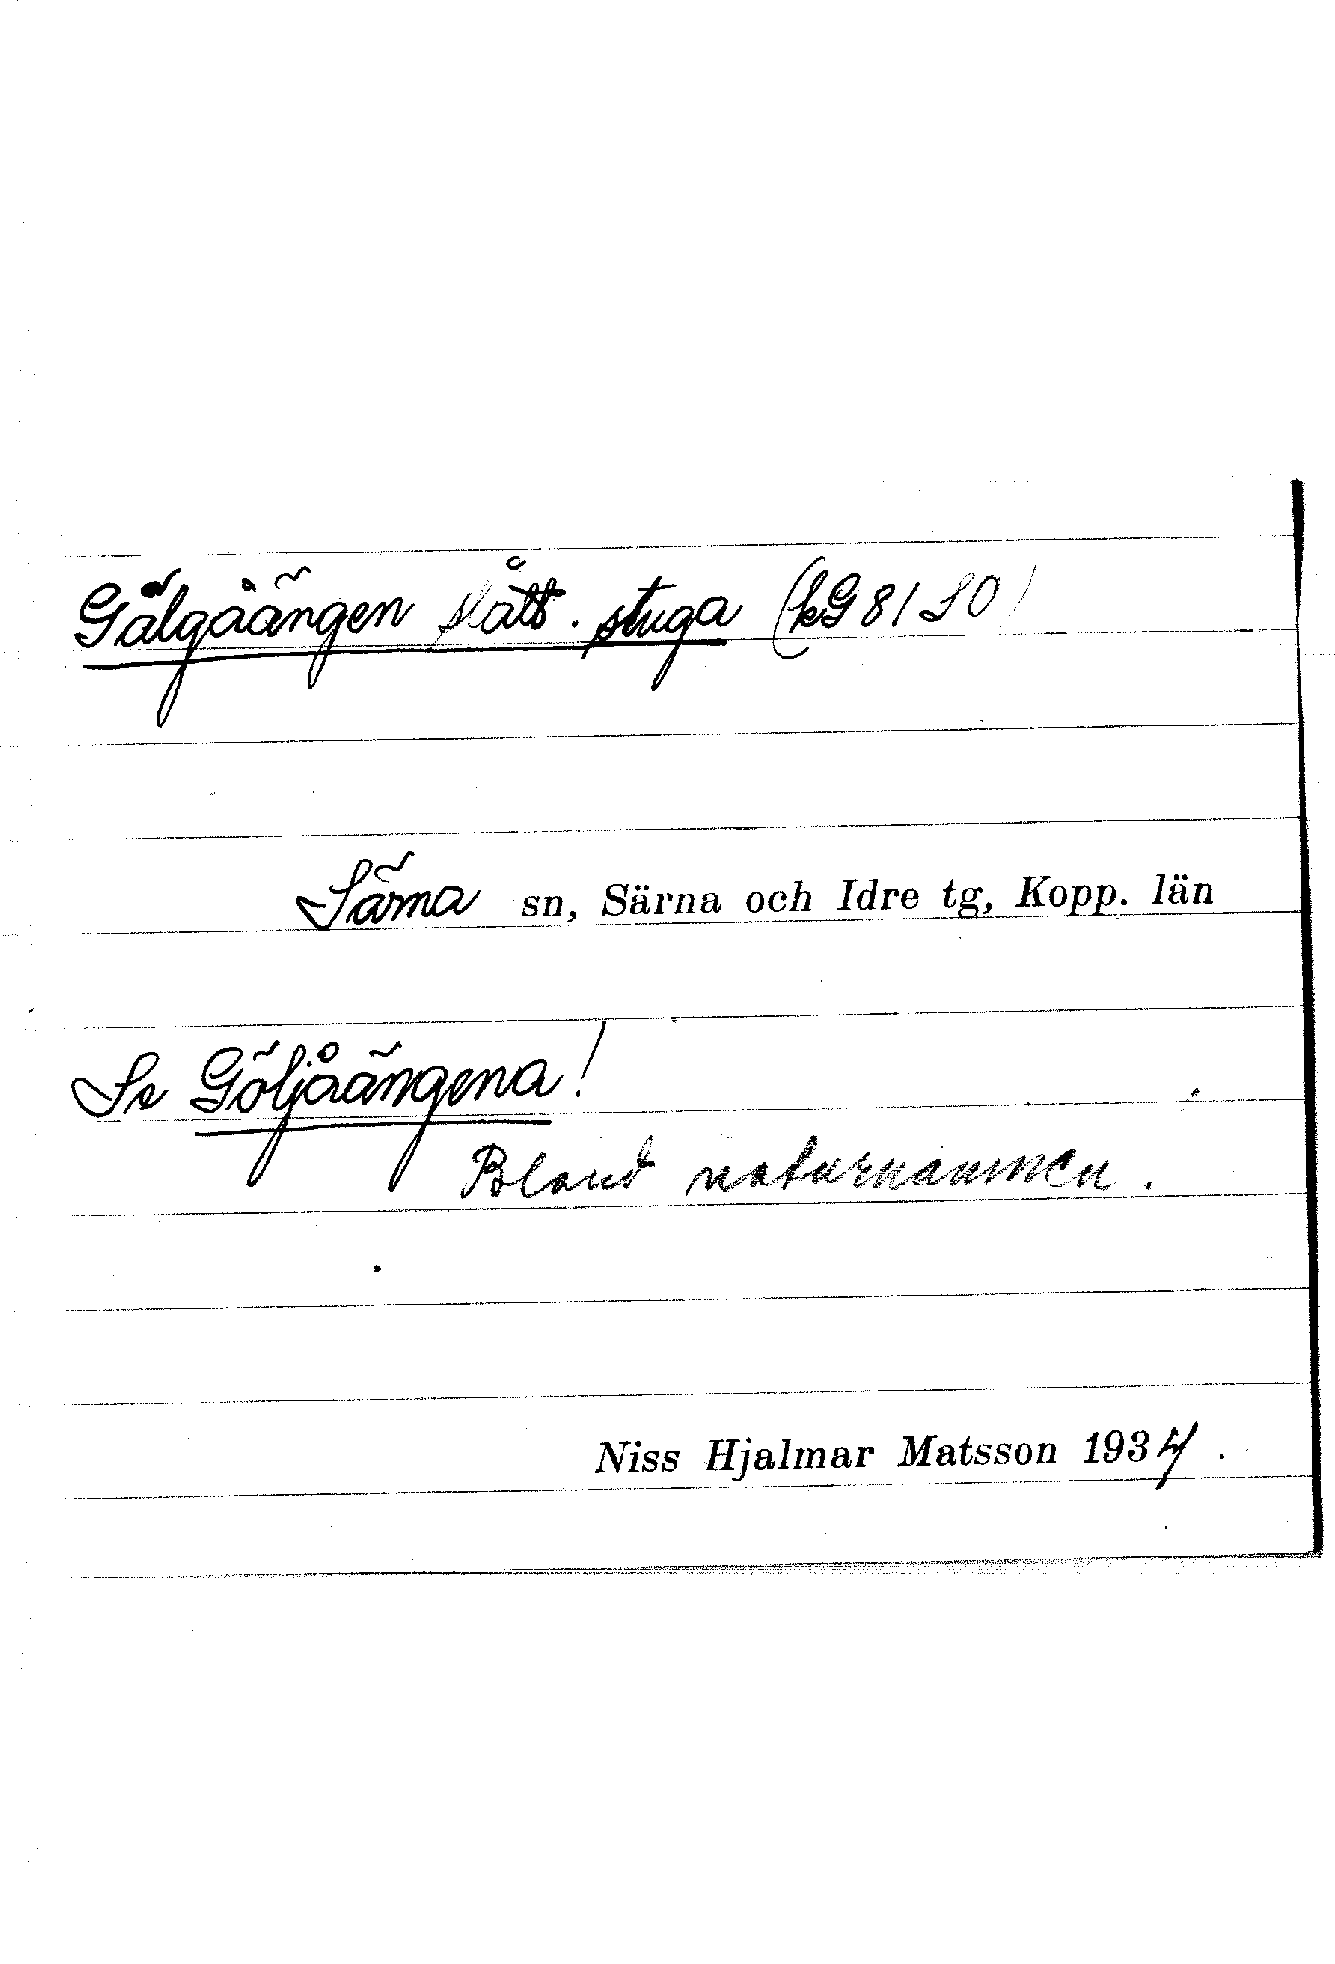 Gälgåängen slått. stuga (kG 81 SO)
Särna sn, Särna och Idre tg, Kopp. län
Se Göljåängena!
Bland naturnamnen.
Niss Hjalmar Matsson 1934.